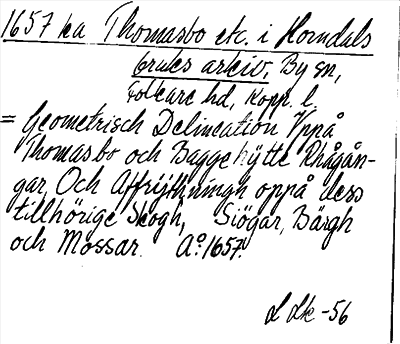 1657 ka Thomasbo etc. i Horndals
bruks arkiv, By sn,
Folkare hd, Kopp. l.
= Geometrisch Delineation Vppå
Thomasbo och Baggehÿtte Rhågån-
gar, Och Affrijthningh oppå dess
tillhörige Skogh, Siögar, Bärgh
och Mossar. A:o 1657.
L Lk -56